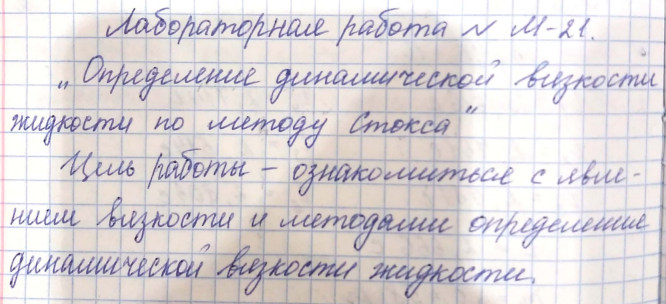 Лабораторная работа № М-21.
„Определение динамической вязкости
жидкости по методу Стокса"
Цель работы – ознакомиться с явле-
нием вязкости и методами определения
динамической вязкости жидкости.